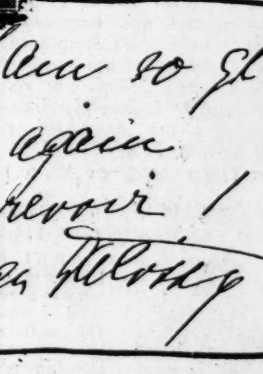 am so gl
again
revoir !